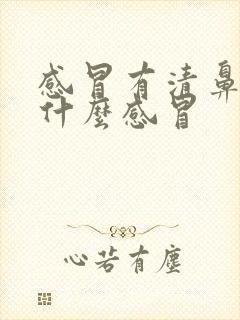 感冒有清鼻
什麼感冒
心若有塵